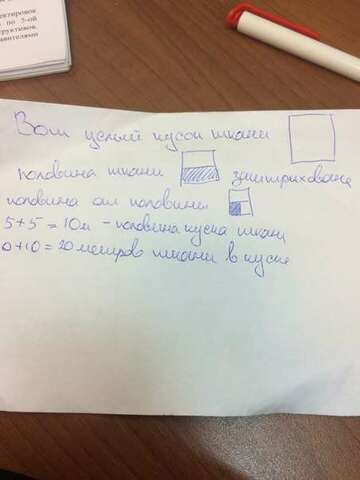 ектировок
по 5-ой
труктивов.
авителями
Вот целый кусок ткани
половина ткани заштрихована
половина от половины
5+5=10м - половина куска ткани
0+10=20 метров ткани в куске